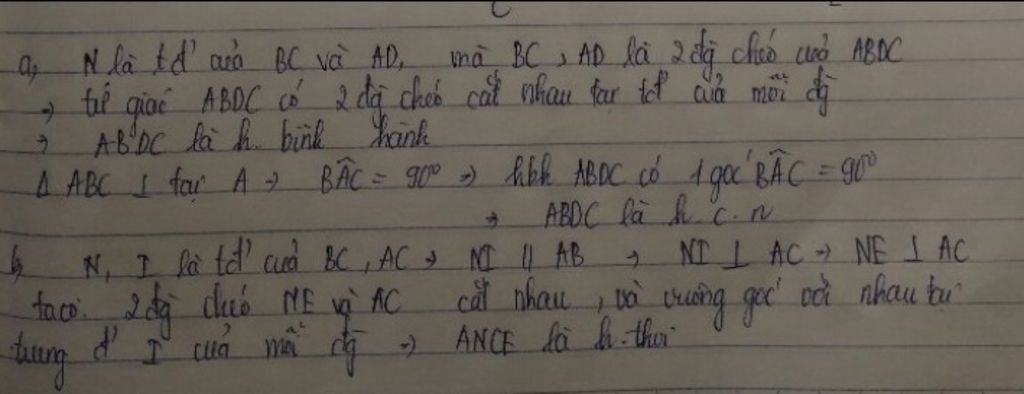 a, N là tđ' của BC và AD, mà BC, AD là 2 đg chéo của ABDC
→ tứ giác ABDC có 2 đg chéo cắt nhau tại tđ' của mỗi đg
→ ABDC là h. bình hành
Δ ABC ⊥ tại A → BÂC = 90° → hbh ABDC có 1 góc BÂC = 90°
→ ABDC là h.c.n
b, N, I là tđ' của BC, AC → NI // AB → NI ⊥ AC → NE ⊥ AC
ta có: 2 đg chéo NE và AC cắt nhau, và vuông góc với nhau tại
trung đ' I của mỗi đg → ANCE là h.thoi